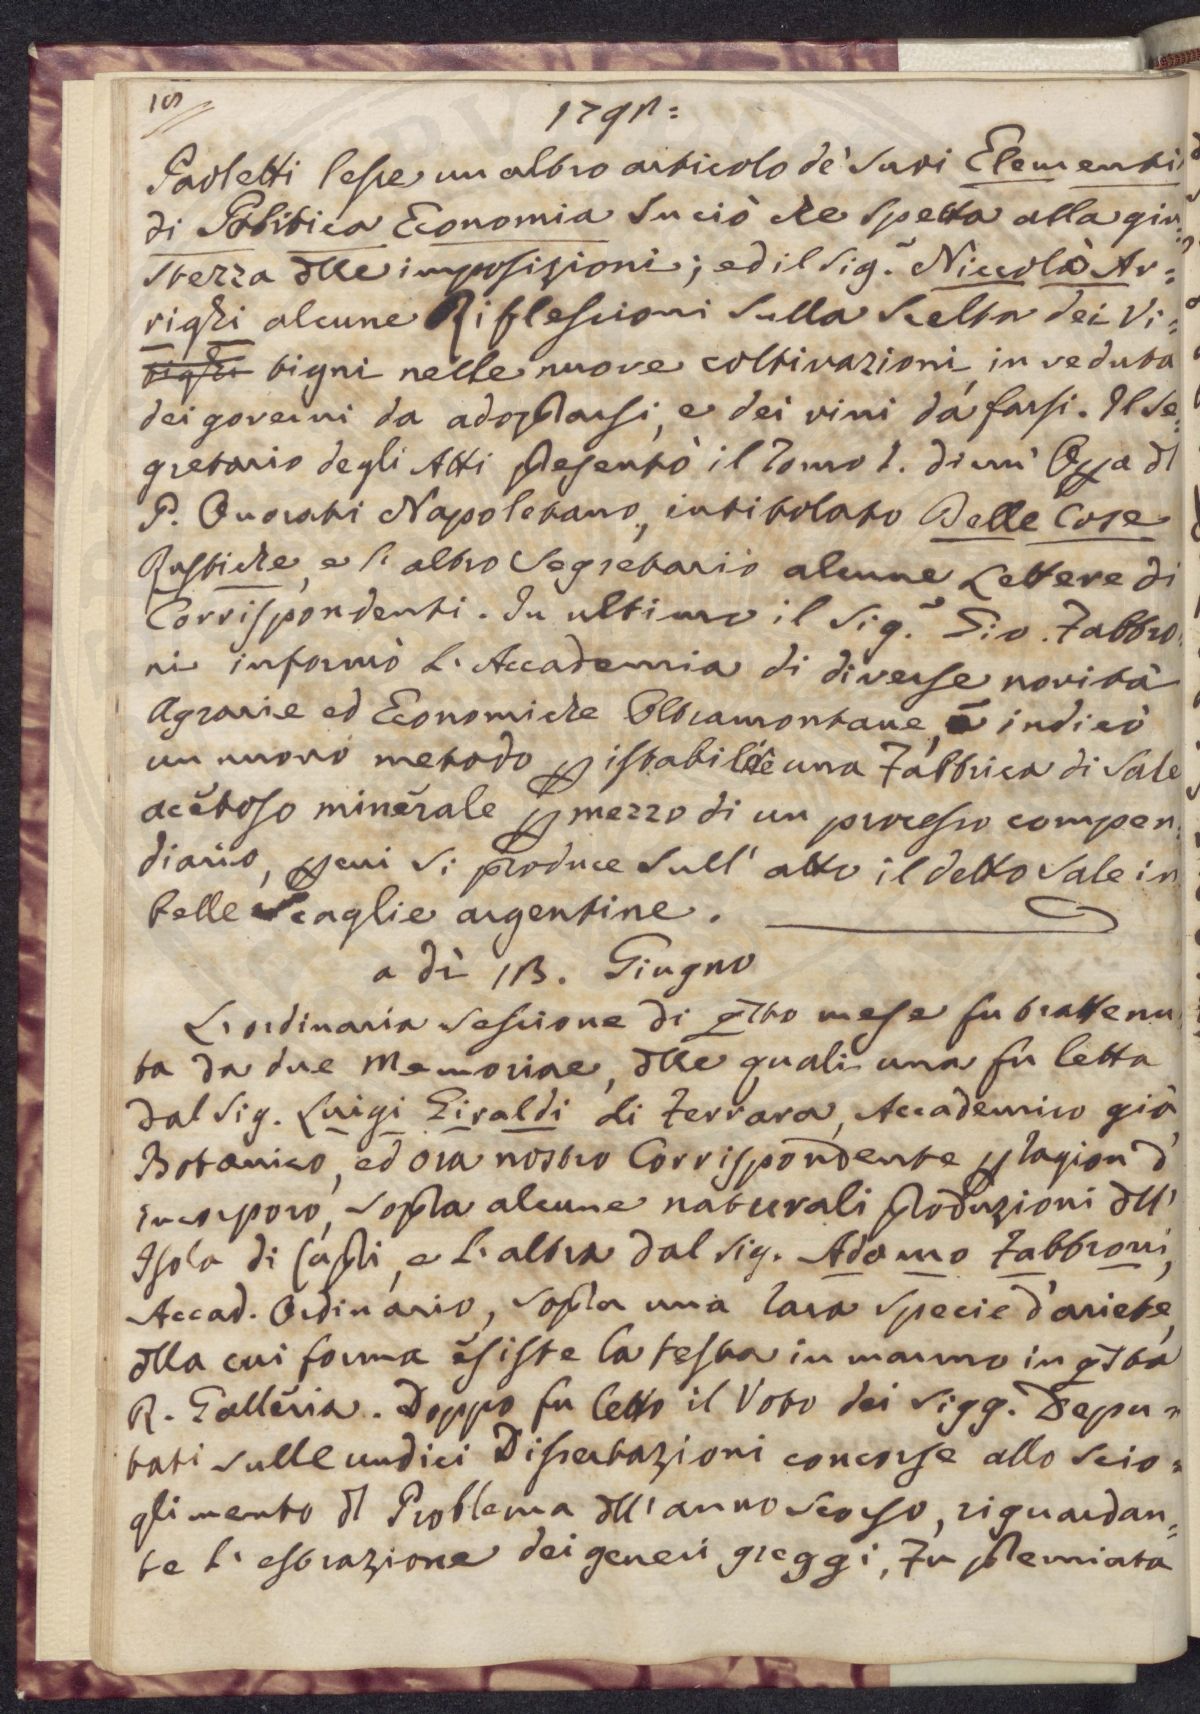 18
1791:
Paoletti lesse un altro articolo de' suoi Elementi
di Politica Economia su ciò che spetta alla giu-
stezza dlle imposizioni; ed il Sig.r Niccolò Ar=
righi alcune Riflessioni sulla scelta dei Vi=
tigni nelle nuove coltivazioni, in veduta
dei governi da adoprarsi, e dei vini da farsi. Il Se=
gretario degli Atti presentò il Tomo I. di un' Opa dl
P. Onorati Napoletano, intitolato Delle Cose
Rustiche, e l' altro Segretario alcune Lettere di
Corrispondenti. In ultimo il Sig.r Gio. Fabbro
ni informò l' Accademia di diverse novità
Agrarie ed Economiche Oltramontane, e indicò
un nuovo metodo p istabilire una Fabbrica di Sale
acetoso minerale p mezzo di un processo compen
diario, p cui si produce sull' atto il detto Sale in
belle scaglie argentine.
a dì 13. Giugno
L' ordinaria Sessione di qsto mese fu trattenu
ta da due Memorie, dlle quali una fu letta
dal Sig. Luigi Giraldi di Ferrara, Accademico già
Botanico, ed ora nostro Corrispondente p ragion d'
incorporo, sopra alcune naturali produzioni dll'
Isola di Capri, e l' altra dal Sig. Adamo Fabbroni,
Accad. Ordinario, sopra una rara specie d' ariete,
dlla cui forma esiste la testa in marmo in qsta
R. Galleria. Doppo fu letto il Voto dei Sigg. Depu=
tati sulle undici Dissertazioni concorse allo scio=
glimento dl Problema dll' anno scorso, riguardan=
te l' estrazione dei generi greggi. Fu premiata